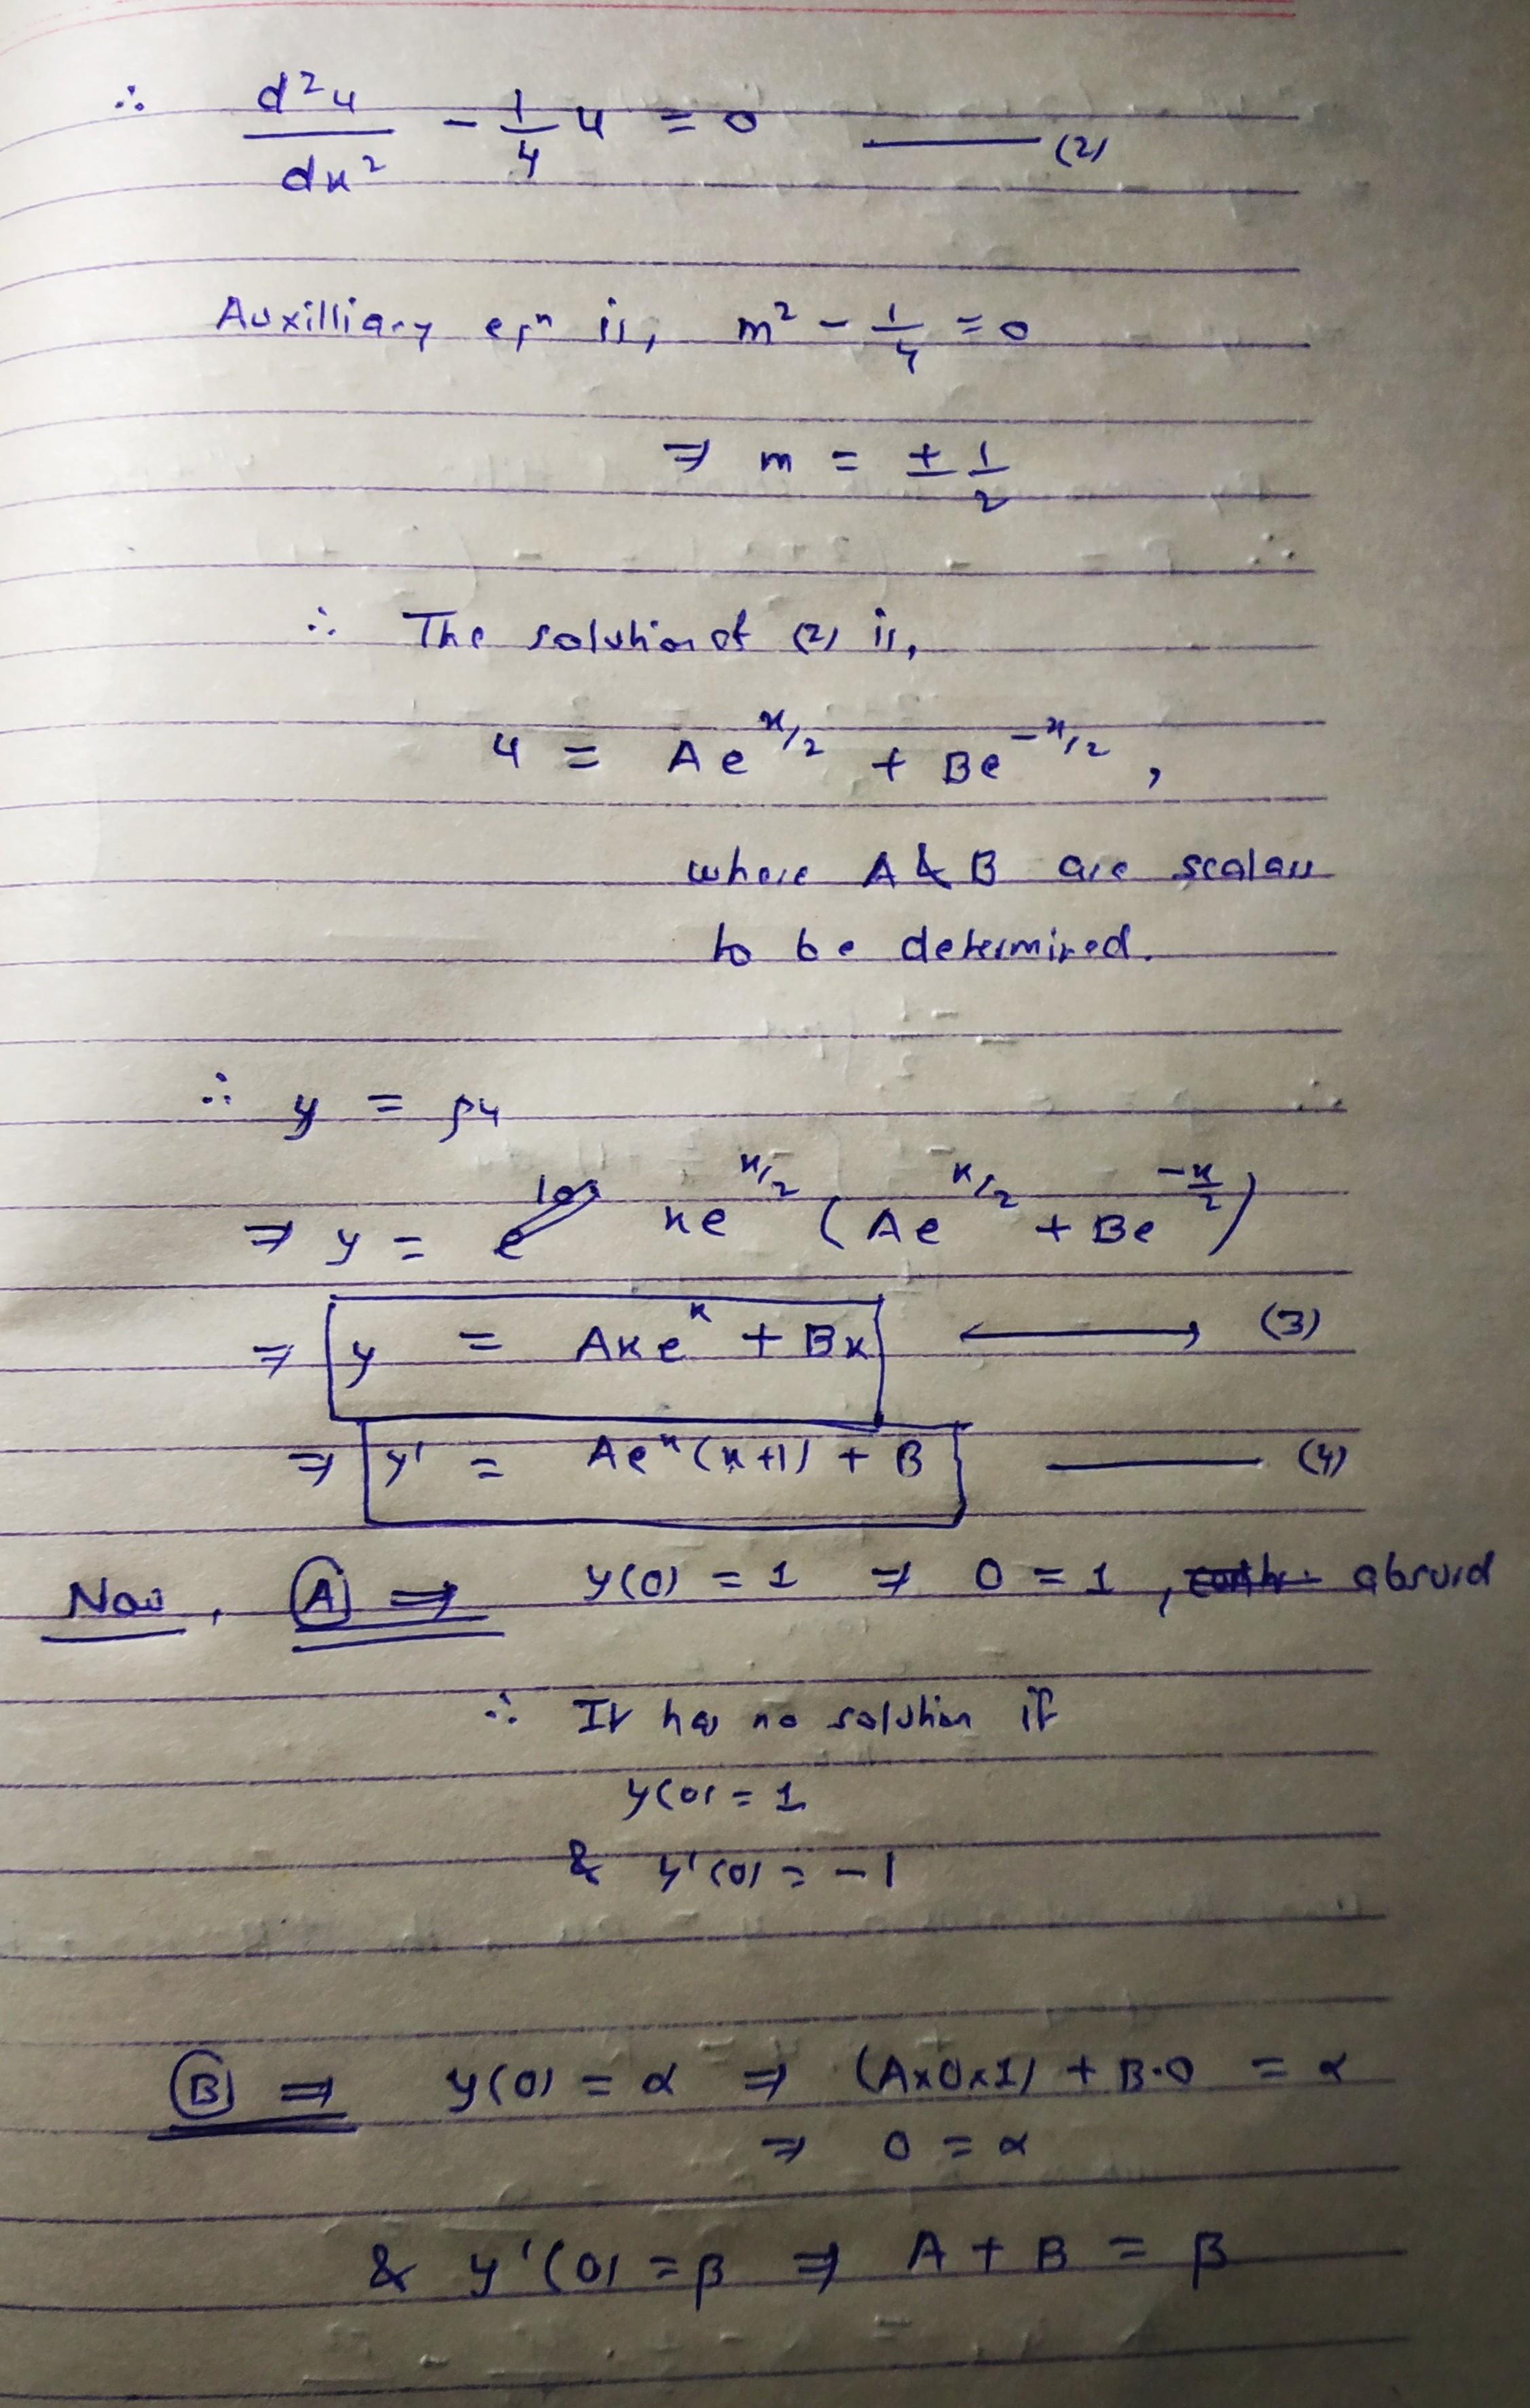 ∴ d²u/dx² - 1/4 u = 0 —— (2)
Auxilliary eqⁿ is, m² - 1/4 = 0
⇒ m = ± 1/2
∴ The solution of (2) is,
u = Ae^(x/2) + Be^(-x/2) ,
where A & B are scalars
to be determined.
∴ y = ρu
⇒ y = xe^(x/2) (Ae^(x/2) + Be^(-x/2))
⇒ y = Axe^x + Bx ⟷ (3)
⇒ y' = Ae^x(x+1) + B —— (4)
Now, (A) ⇒ y(0) = 1 ⇒ 0 = 1 , absurd
∴ It has no solution if
y(0) = 1
& y'(0) = -1
(B) ⇒ y(0) = α ⇒ (A×0×1) + B·0 = α
⇒ 0 = α
& y'(0) = β ⇒ A + B = β